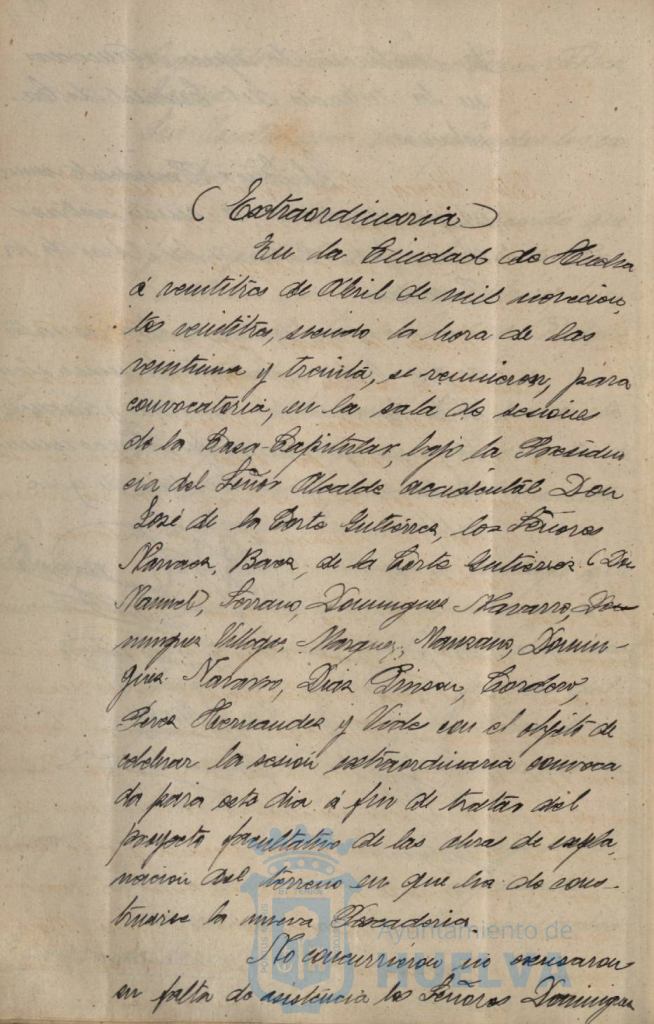 (Extraordinaria)
En la Ciudad de Huelva
á veintitres de Abril de mil novecien,
tos veintitres, siendo la hora de las
veintiuna y treinta, se reunieron, para
convocatoria, en la sala de sesiones
de la Casa-Capitular, bajo la Presiden
cia del Señor Alcalde accidental Don
José de la Corte Gutiérrez, los Señores
Narvaez, Baez, de la Corte Gutiérrez (Dn
Manuel), Serrano, Dominguez Navarro, Do
minguez Villegas, Marquez, Manzano, Domin-
guez Navarro, Diaz Pinzon, Cordero,
Pérez Hernandez y Vides con el objeto de
celebrar la sesión extraordinaria convoca
da para este dia á fin de tratar del
proyecto facultativo de las obras de expla
nación del terreno en que ha de cons-
truirse la nueva Pescaderia.
No concurrieron ni excusaron
su falta de asistencia los Señores Dominguez
Ayuntamiento de
HUELVA